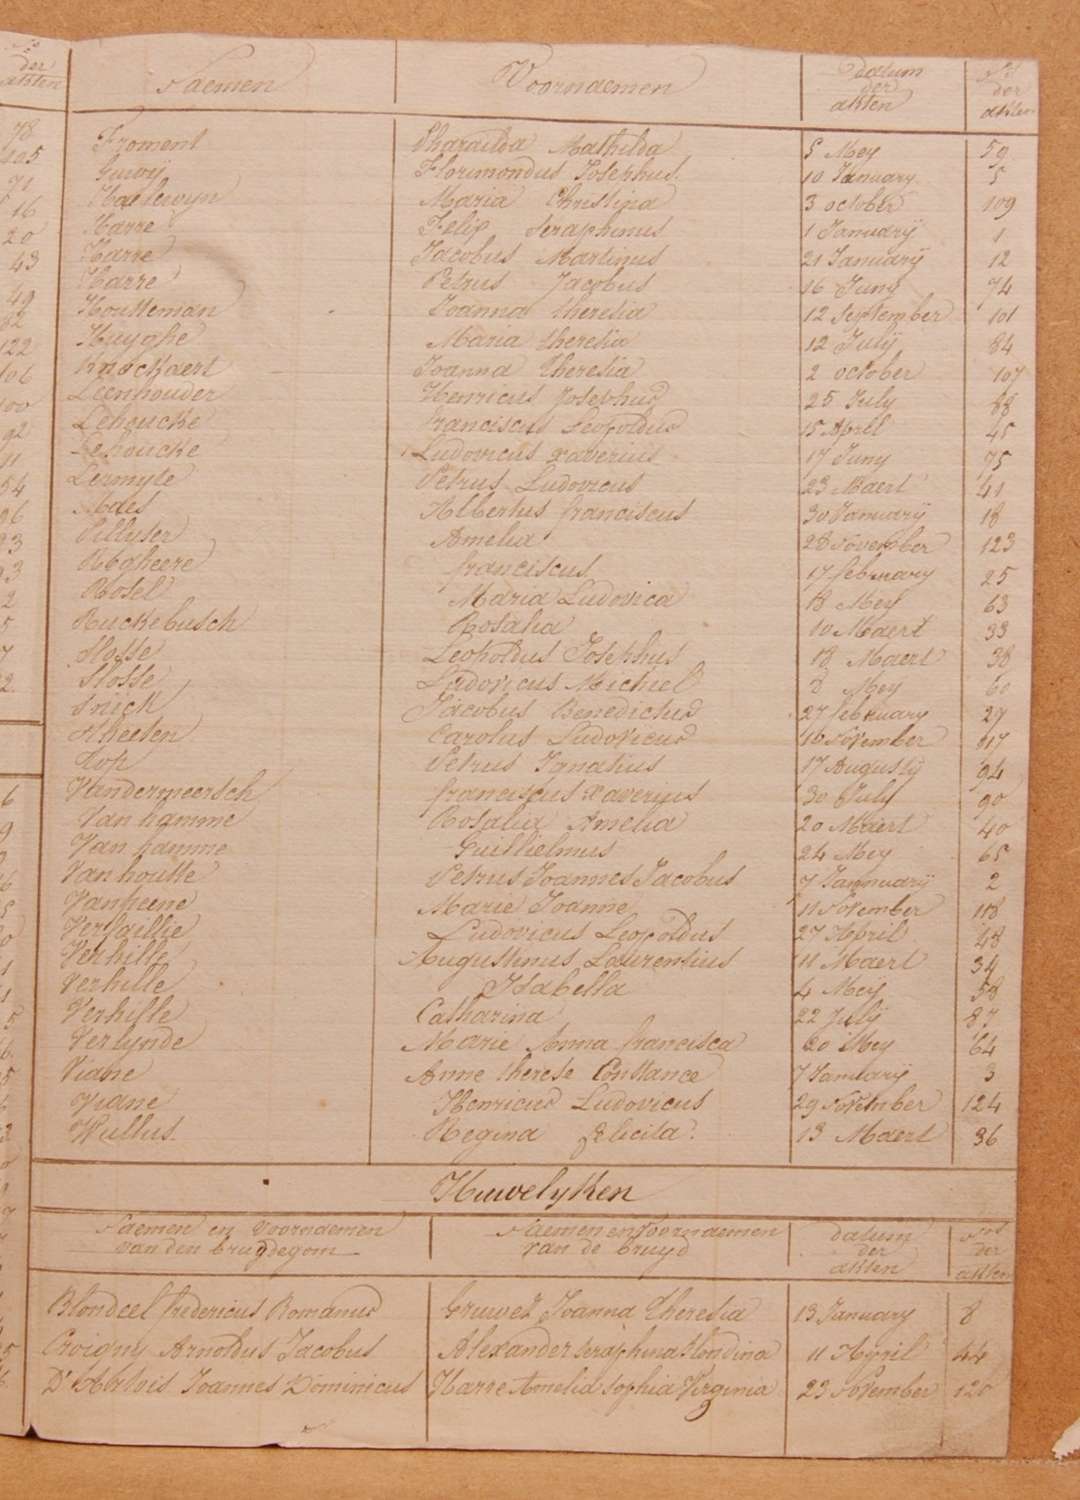 Naemen Voornaemen datum der akten N.os der akten
Froment Pharaïlda Mathilda 5 Mey 59
Florimondus Josephus 10 January 5
Haelewyn Maria Christina 3 october 109
Harre Felix Seraphinus 1 Januarÿ 1
Harre Jacobus Martinus 21 Januarÿ 12
Harre Petrus Jacobus 16 Juny 74
Houtteman Joanna theresia 12 September 101
Huyghe Maria theresia 12 Julÿ 84
Knockaert Joanna theresia 2 october 107
Leenhouder Henricus Josephus 25 July 88
Lehoucke franciscus Leopoldus 15 April 45
Lehoucke Ludovicus xaverius 17 Juny 75
Lermyte Petrus Ludovicus 23 Maert 41
Maes Albertus franciscus 30 Januarÿ 18
Pillyser Amelia 28 November 123
Regheere franciscus 17 february 25
Rosel Maria Ludovica 18 Mey 63
Ruckebusch Rosalia 10 Maert 33
Slosse Leopoldus Josephus 18 Maert 38
Slosse Ludovicus Michiel 8 Mey 60
Snick Jacobus Benedictus 27 february 29
Carolus Ludovicus 16 November 117
Top Petrus Ignatius 17 Augusty 94
Vandermeersch franciscus xaverius 30 July 90
Van hamme Rosalia Amelia 20 Maert 40
Van hamme Guillielmus 24 Mey 65
Van houtte Petrus Joannes Jacobus 7 Jannuarÿ 2
Vanheene Marie Joanne 11 November 118
Verhaillie Ludovicus Leopoldus 27 April 48
Verhille Augustinus Laurentius 11 Maert 34
Verhille Isabella 4 Meÿ 58
Verhille Catharina 22 Julÿ 87
Verlynde Marie Anna francisca 20 Mey 64
Viane Anne therese Constance 7 Januarÿ 3
Viane Henricus Ludovicus 29 November 124
Wullus Regina felicita 13 Maert 36
Huwelyken
Naemen en voornaemen van den bruydegom Naemen en Voornaemen van de bruyd datum der akten N.os der akten
Blondeel fredericus Romanus Gruwet Joanna theresia 13 January 8
Croigny Arnoldus Jacobus Alexander Seraphina Blondina 11 April 44
D'Artois Joannes Dominicus Harre Amelia Sophia Virginia 23 November 120